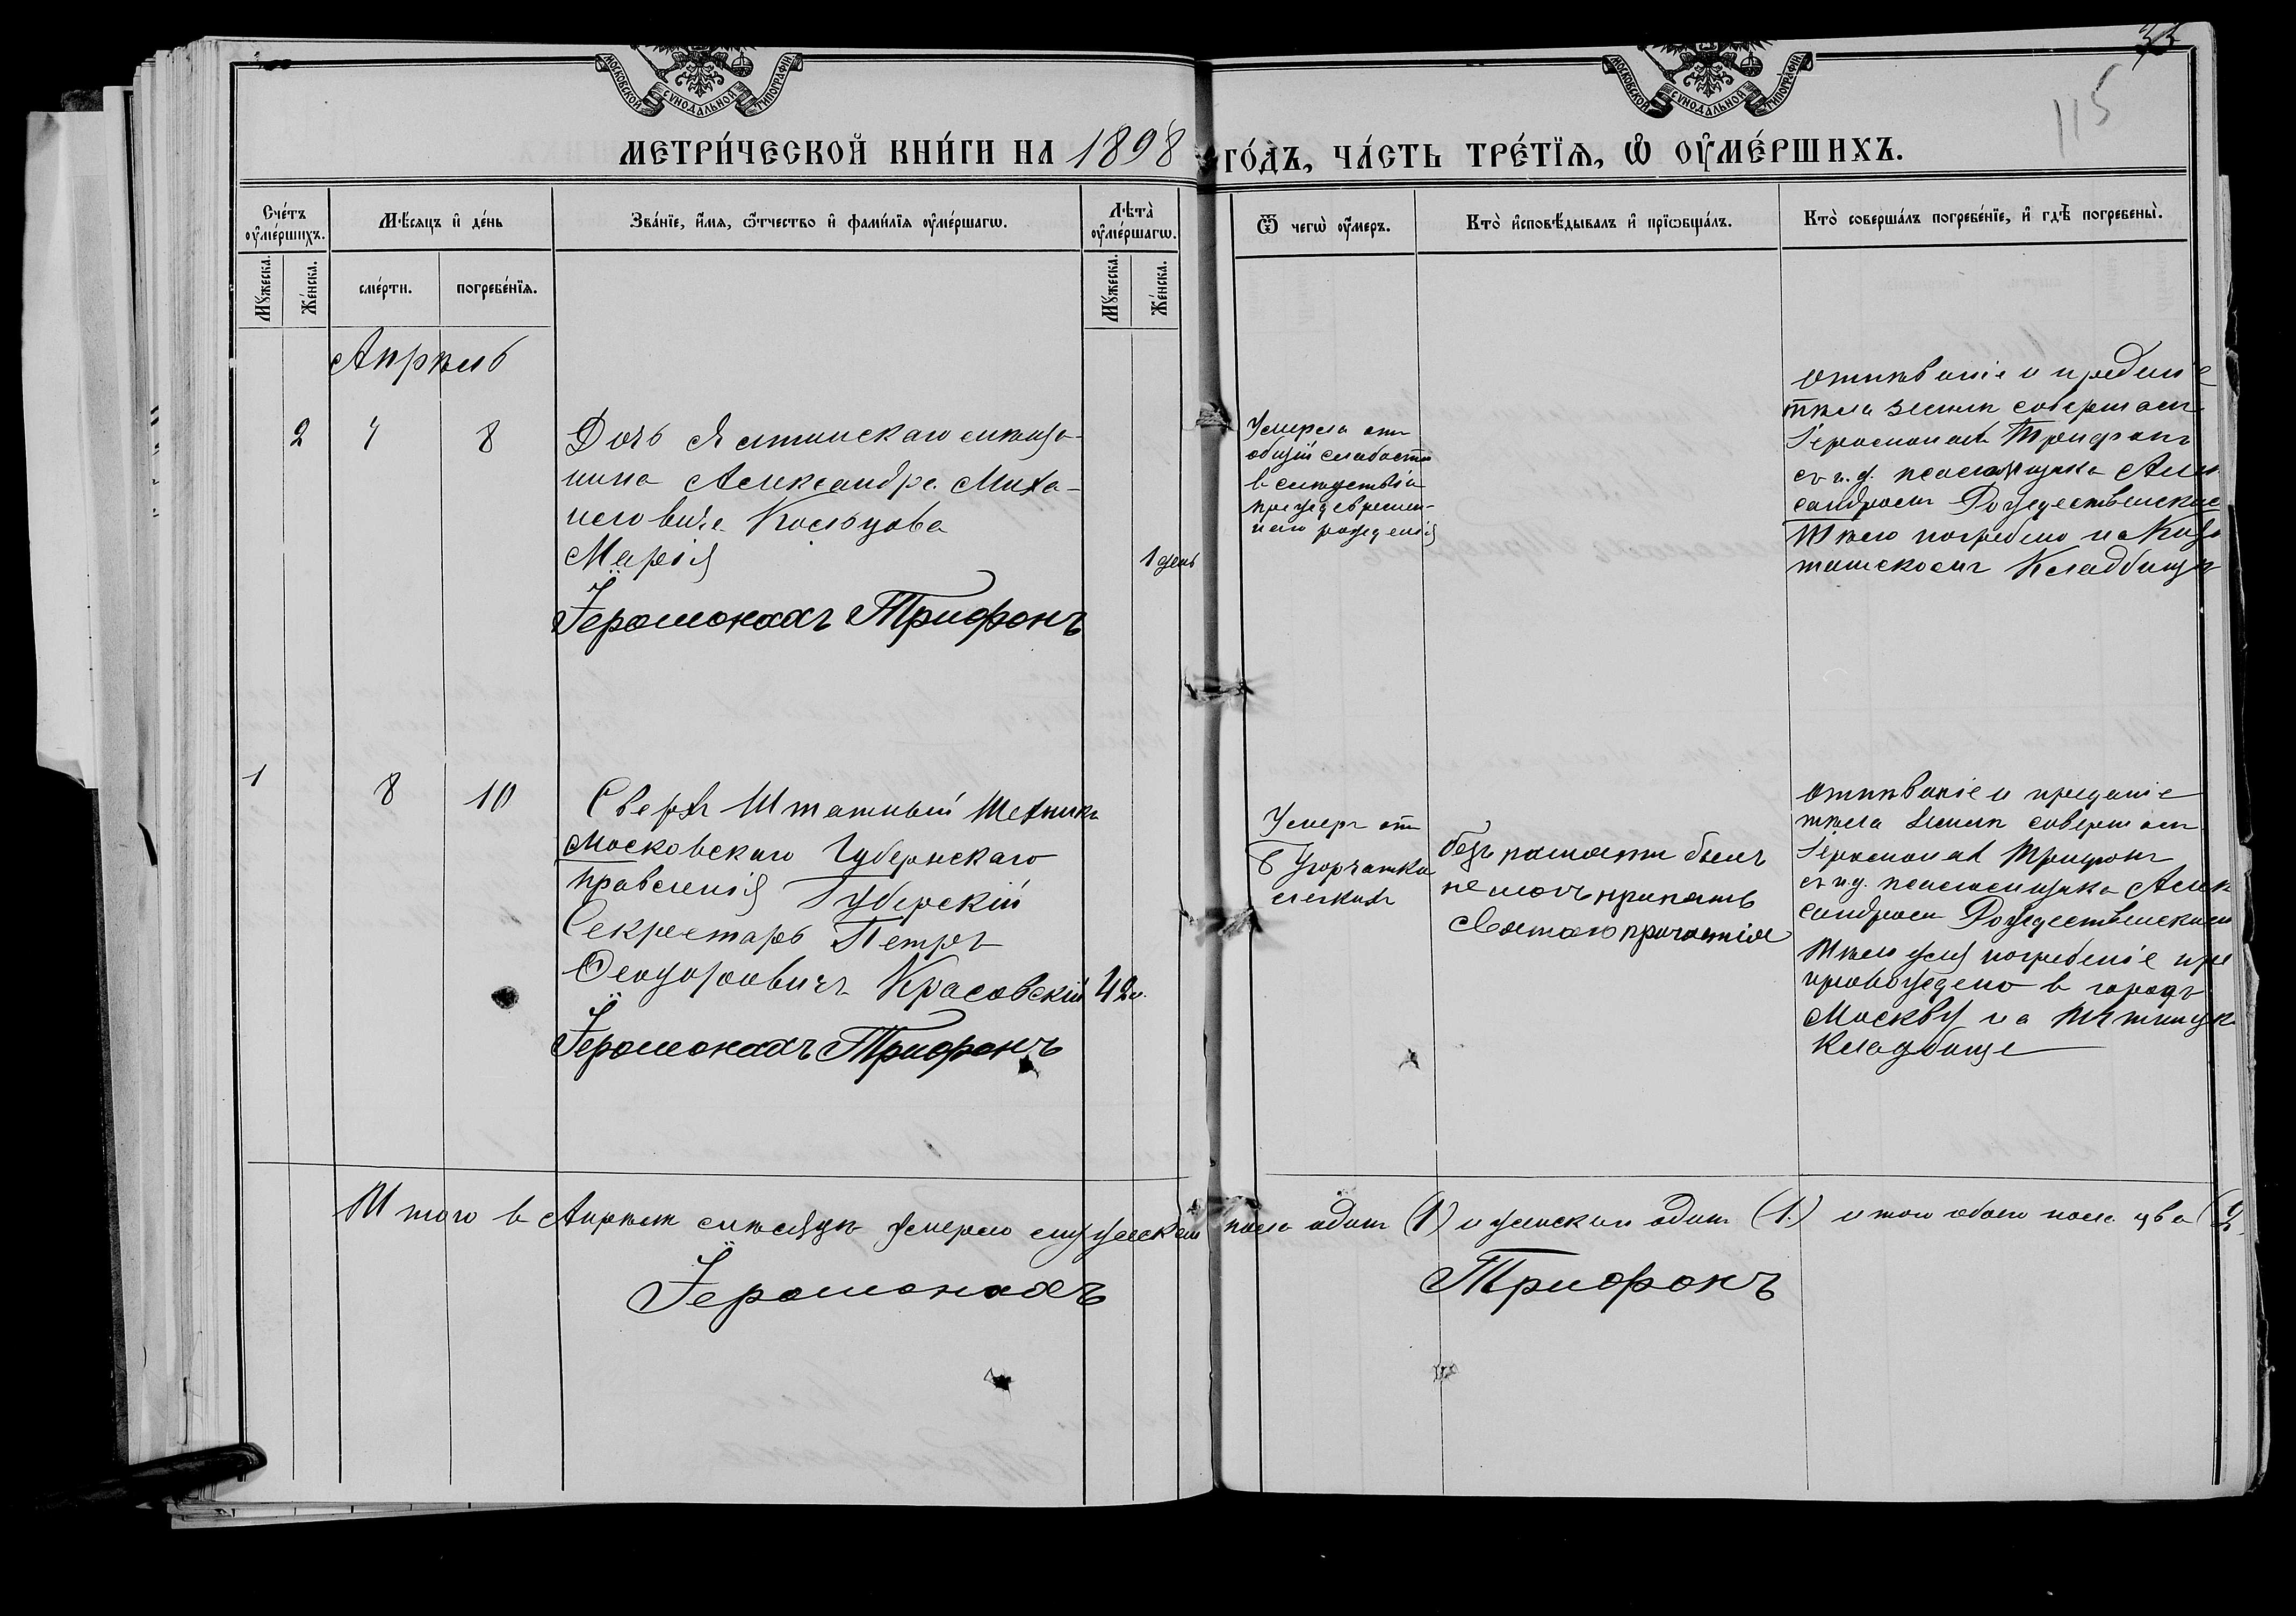 МОСКОВСКОЙ СУНОДАЛЬНОЙ ТИПОГРАФІИ
МОСКОВСКОЙ СУНОДАЛЬНОЙ ТИПОГРАФІИ
115
МЕТРИ́ЧЕСКОЙ КНИ́ГИ НА 1898 ГО́ДЪ, ЧА́СТЬ ТРЕ́ТЇѦ, Ѡ ОУМЕ́РШИХЪ.
Сче́тъ оуме́ршихъ.
Мѣ́сяцъ и де́нь
Зва́нїе, и́мя, ѻ́тчество и фами́лїя оуме́ршагѡ.
Лѣта̀ оуме́ршагѡ.
Ѿ чегѡ̀ оу́меръ.
Кто̀ и҆сповѣ́дывалъ и прїѡбща́лъ.
Кто̀ соверша́лъ погребе́нїе, и гдѣ̀ погребены̀.
Мꙋ́жеска.
Же́нска.
сме́рти.
погребе́нїя.
Мꙋ́жеска.
Же́нска.
Апрѣль
2
7
8
Дочь Ялтинскаго мѣща-
нина Александра Миха-
иловича Кольцова
Марія
1 день
Іеромонахъ Трифонъ
Умерла отъ
общей слабости
в слѣдствіи
преждевремен-
наго рожденія
Отпѣваніе и преданіе
тѣла землѣ совершалъ
Іеромонахъ Трифонъ
съ и.д. псаломщика Алек
сандромъ Рождественским
Тѣло погребено на
Кладбищѣ
1
8
10
Сверхъ Штатный Техникъ
Московскаго Губернскаго
Правленія Губерскій
Секретарь Петръ
Ѳеодоровичъ Красовскій
42 г.
Іеромонахъ Трифонъ
Умеръ отъ
Бугорчатки
легкихъ
безъ памяти былъ
не могъ принать
Святаго причастія
Отпѣваніе и преданіе
тѣла землѣ совершалъ
Іеромонахъ Трифонъ
съ и.д. псаломщика Алек
сандромъ Рождественскимъ
Тѣло для погребеніе пре
провождено в городъ
Москву на
Кладбище
Итого в Апрѣлѣ мѣсяцѣ Умерло мужескаго пола одинъ (1) и женскаго одинъ (1.) итого обоего пола два (2.
Іеромонахъ Трифонъ